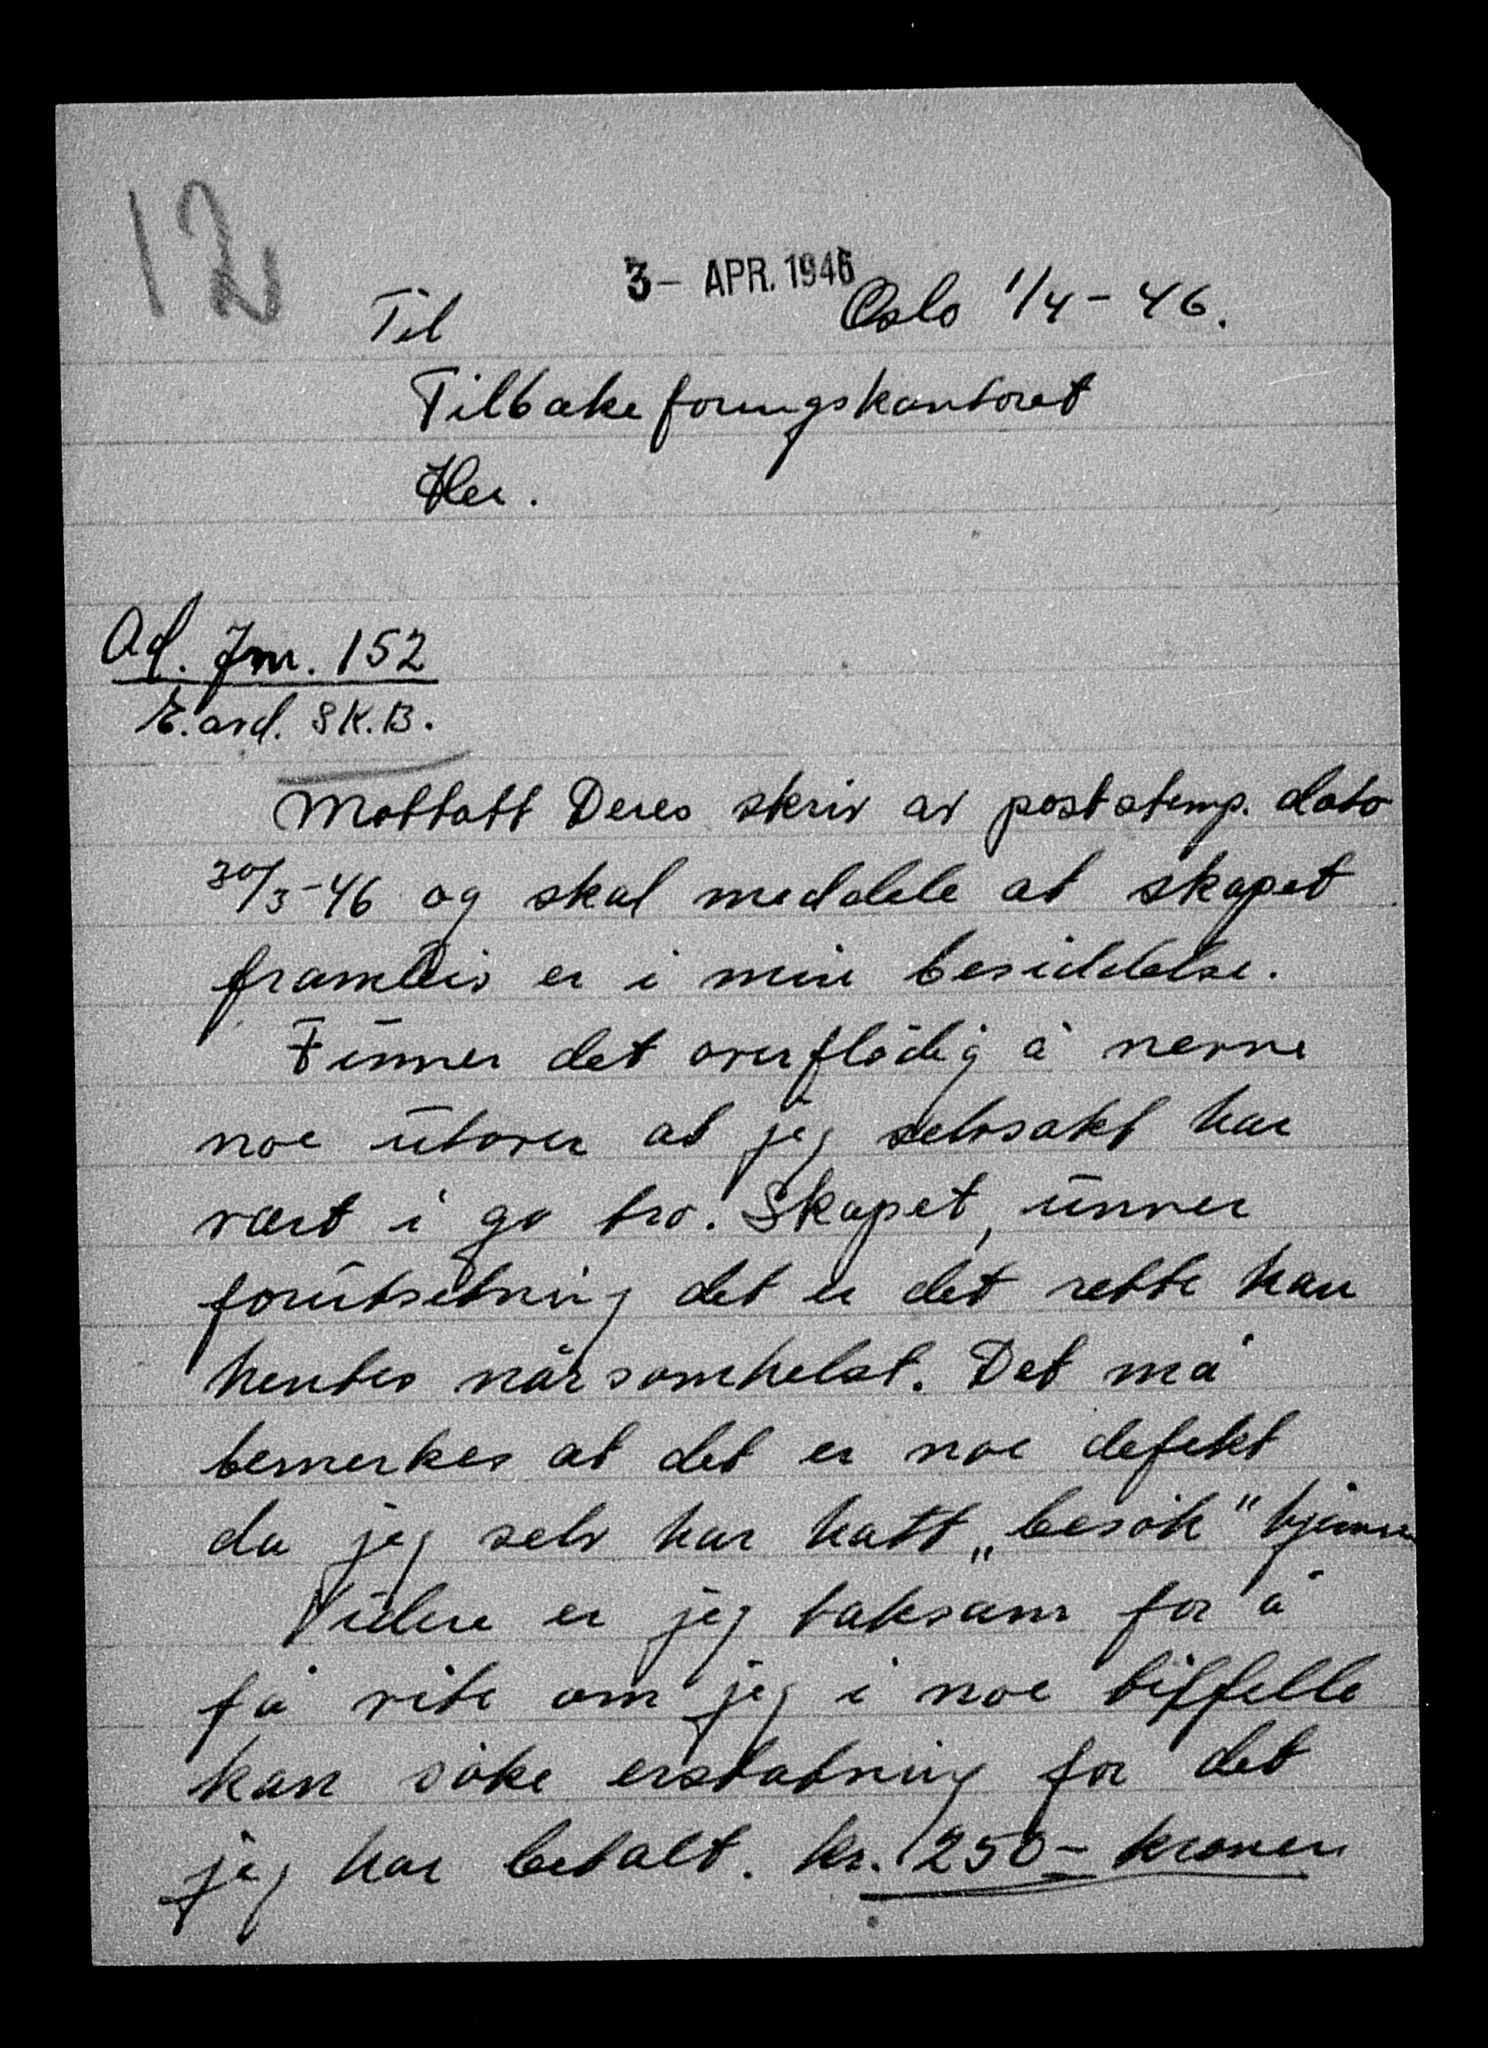 12
3- APR. 1946
Til Oslo 1/4 - 46.
Tilbakeføringskontoret
Her.
Ad. Jnr. 152
E. avd. SK.B.
Mottatt Deres skriv av poststemp. dato
30/3-46 og skal meddele at skapet
framleis er i min besiddelse.
Finner det overflödig å nevne
noe utover at jeg selvsakt har
vært i go tro. Skapet, unner
forutsetning det er det rette kan
hentes når somhelst. Det må
bemerkes at det er noe defekt
da jeg selv har hatt „besök" hjemme
Videre er jeg taksam for å
få vite om jeg i noe tilfelle
kan söke erstatning for det
jeg har betalt. kr. 250- kroner